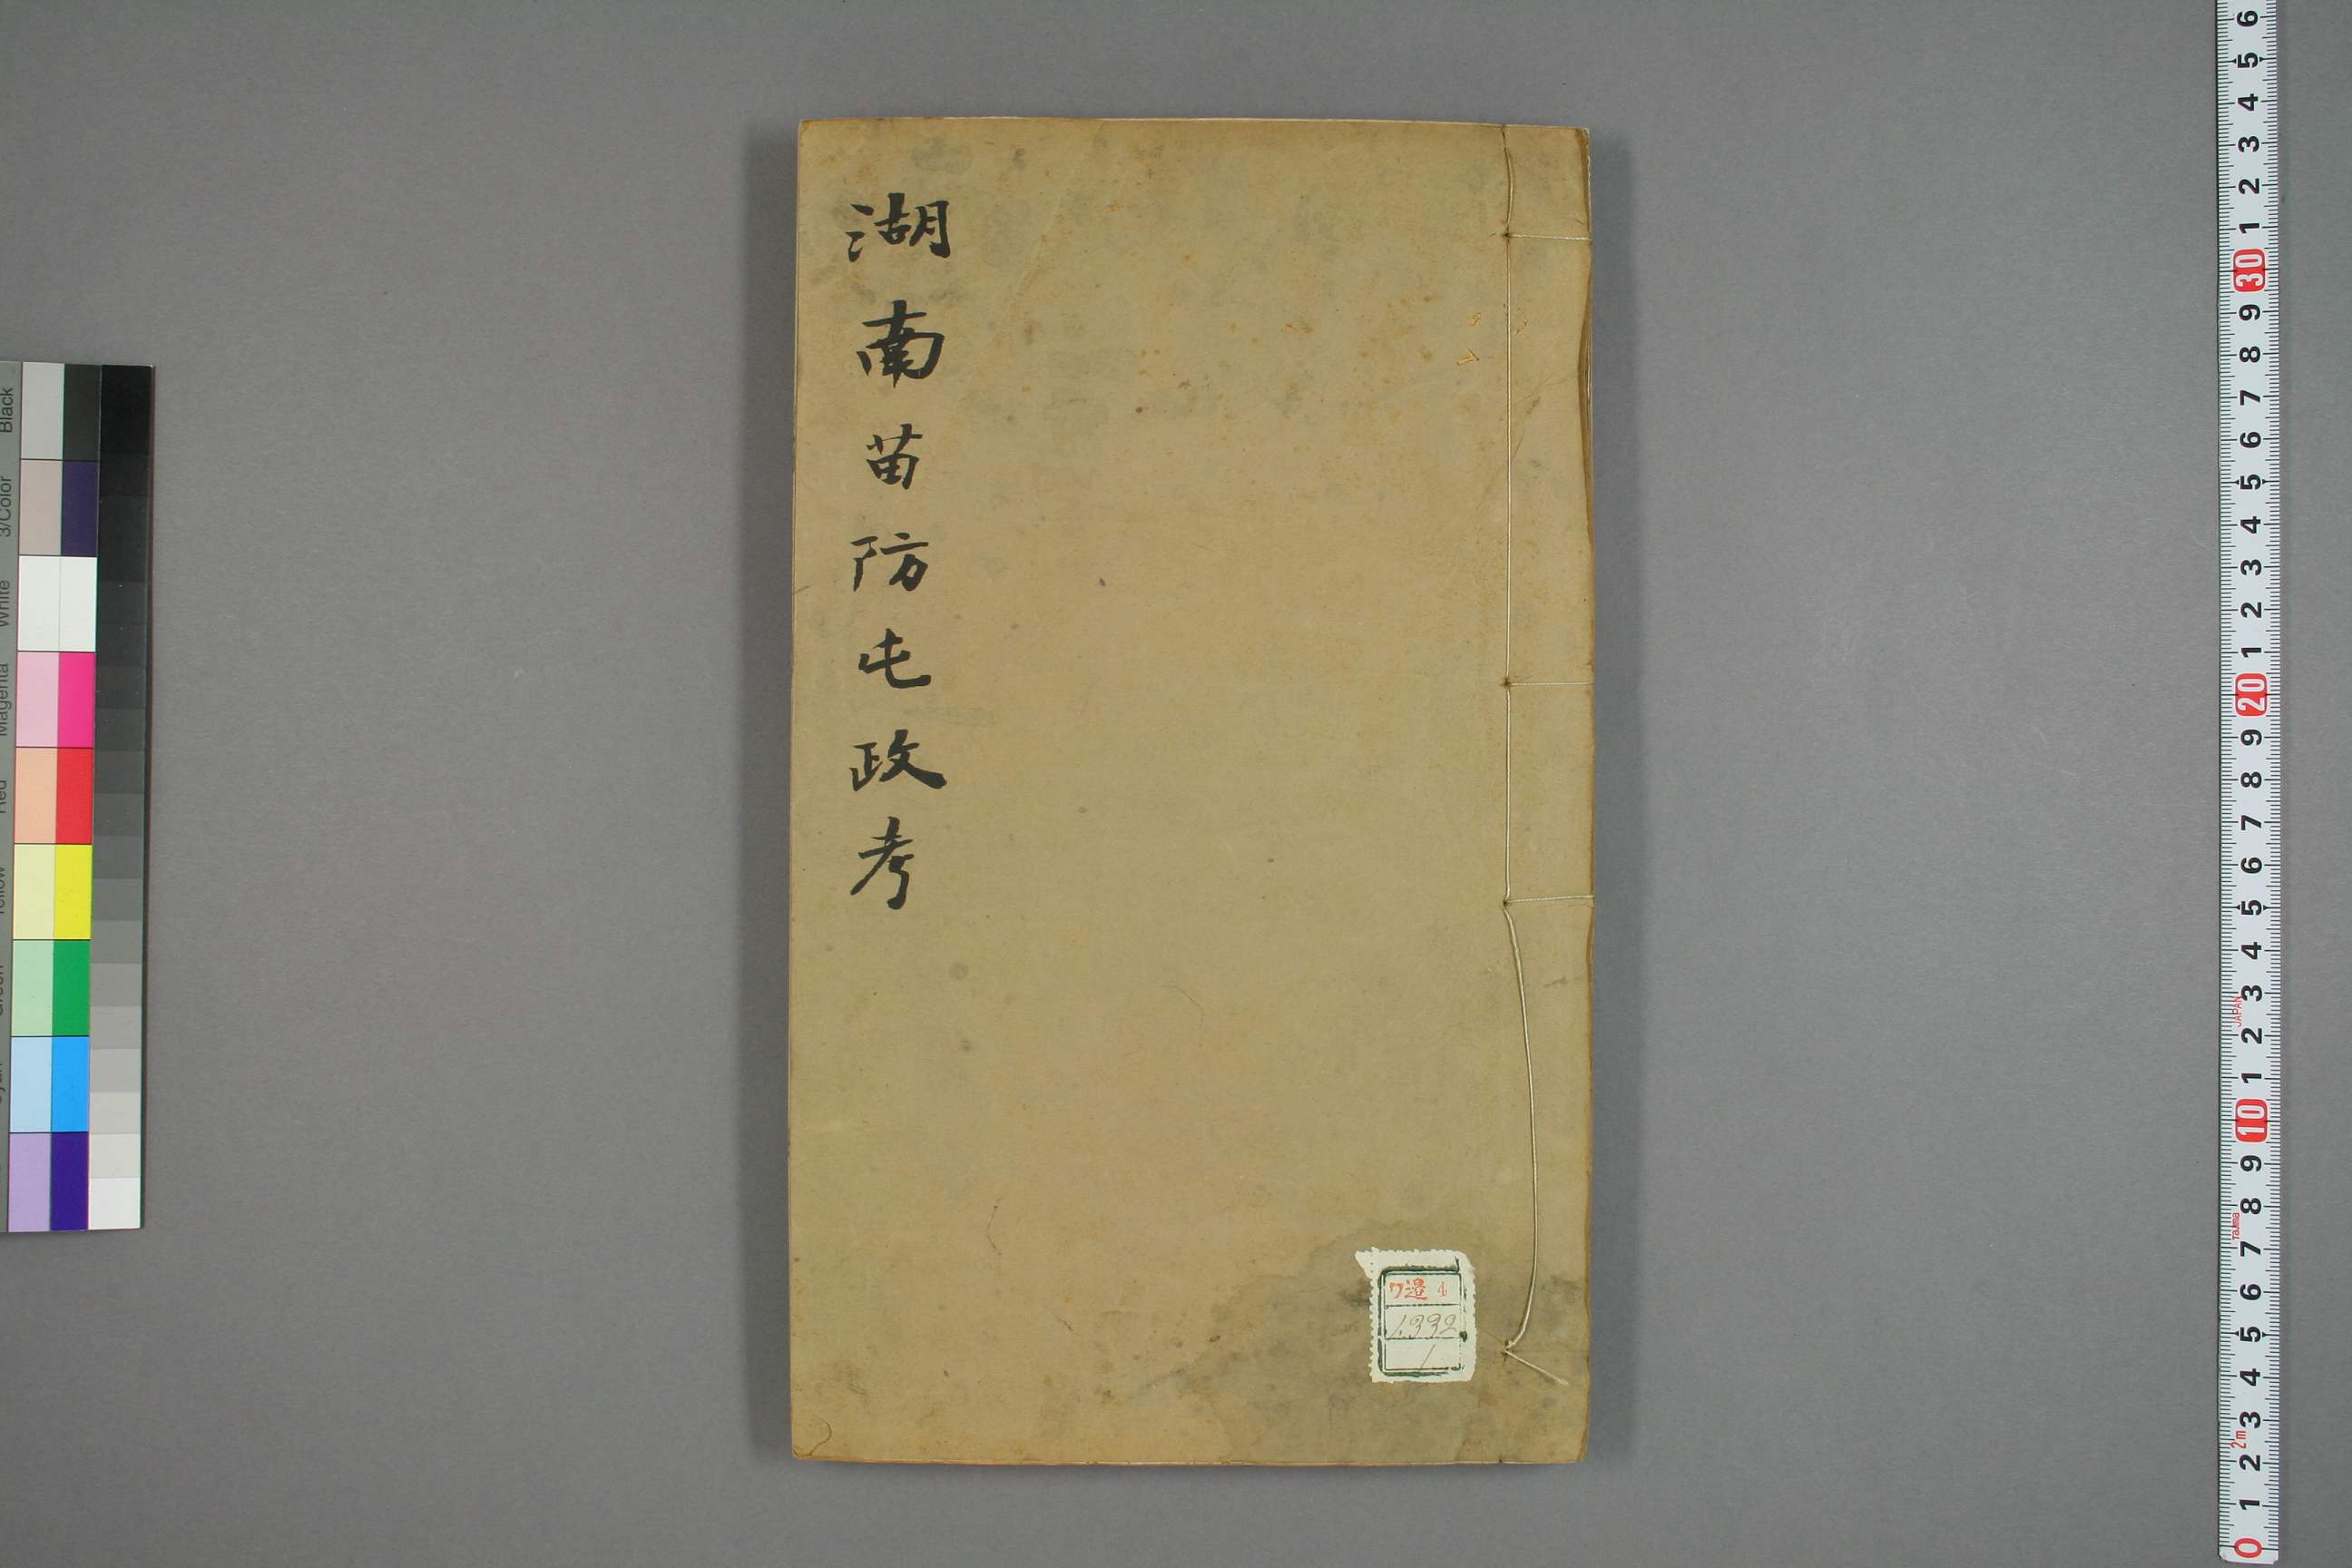 湖南苗防屯政考
1332
1
Black
3/Color
White
Magenta
Red
Yellow
Green
Cyan
6
5
4
3
2
1
30
9
8
7
6
5
4
3
2
1
20
9
8
7
6
5
4
3
JAPAN
2
1
10
9
8
Tajima
7
6
5
4
3
2m
2
1
0